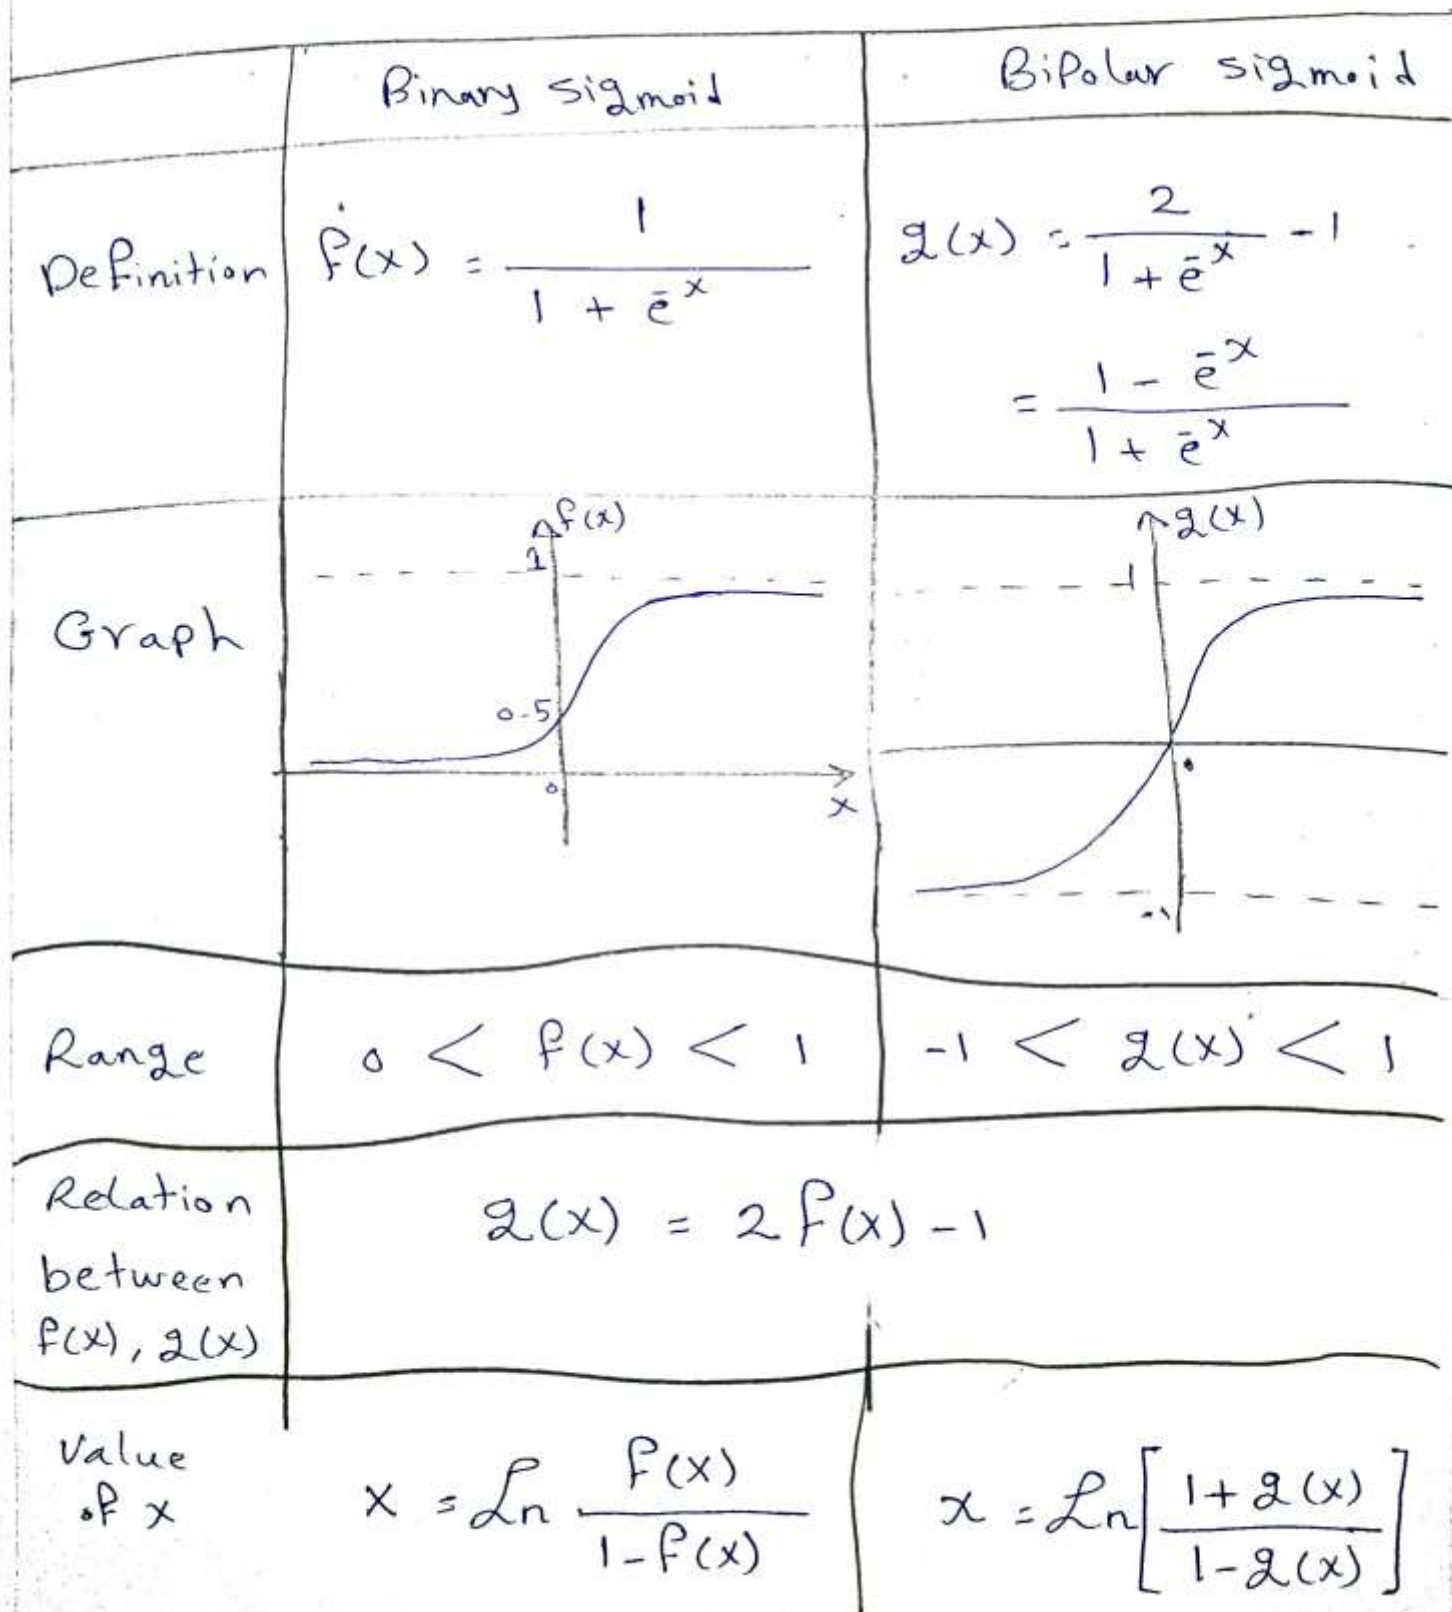 Binary sigmoid
Bipolar sigmoid
Definition
f(x) = 1 / (1 + e^-x)
g(x) = 2 / (1 + e^-x) - 1
= (1 - e^-x) / (1 + e^-x)
Graph
f(x)
1
0.5
0
x
g(x)
1
0
-1
Range
0 < f(x) < 1
-1 < g(x) < 1
Relation
between
f(x), g(x)
g(x) = 2 f(x) - 1
Value
of x
x = Ln f(x) / (1 - f(x))
x = Ln [ (1 + g(x)) / (1 - g(x)) ]